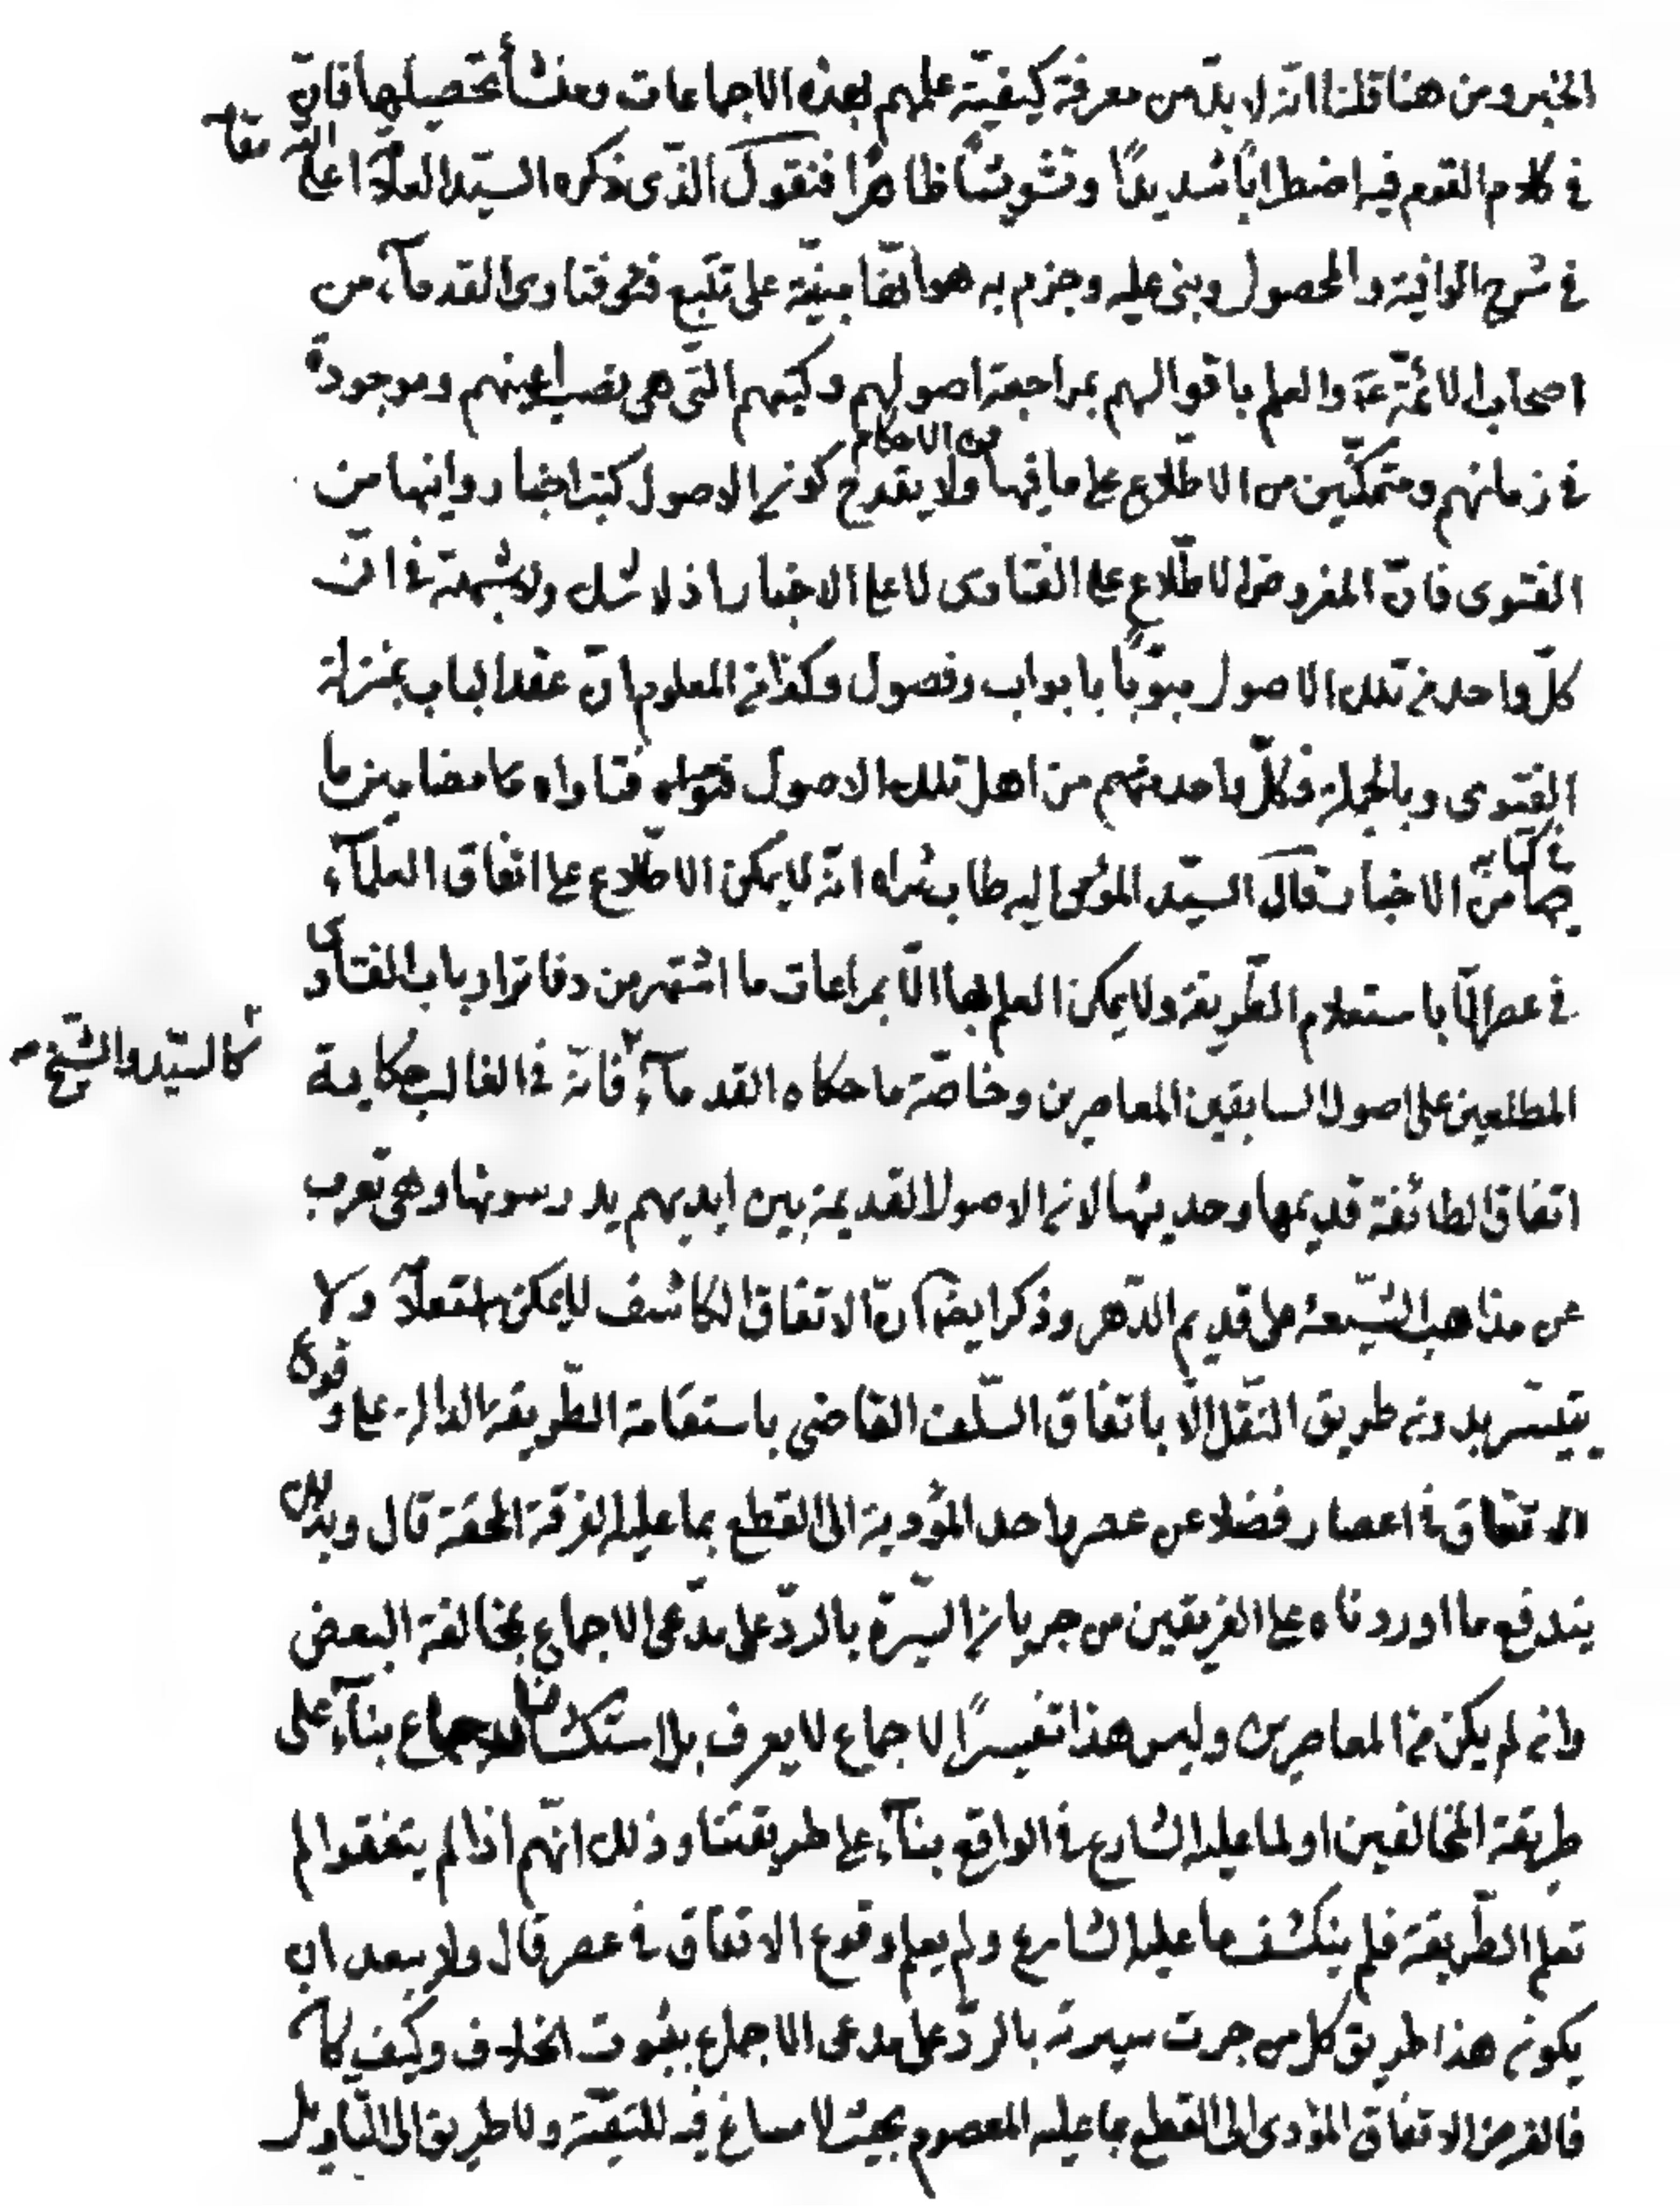 الخبر ومن هنا قلنا انّه لا بدّ من معرفة كيفيّة علمهم بهذه الاجماعات ومنشأ تحصيلها فانّ
في كلام القوم فيه اضطراباً شديداً وتشويشاً ظاهراً فنقول الذّى ذكره السيّد العلّامة اعلى الله مقامه
في شرح الوافية والمحصول وبنى عليه وجزم به هو انّها مبنيّة على تتبّع فتاوى القدمآء من
اصحاب الائمّة ع والعلم باقوالهم بمراجعة اصولهم وكتبهم التّى هى نصب اعينهم وموجودة
في زمانهم ومتمكّنين من الاطّلاع على ما فيها من الاحكام ولا يقدح كون الاصول كتب اخبار وانها من
الفتوى فانّ المفروض الاطّلاع على الفتاوى لا على الاخبار اذ لا شك ولا شبهة في انّ
كلّ واحد من تلك الاصول مبوّباً بابواب وفصول وكذا من المعلوم انّ عقد الباب بمنزلة
الفتوى وبالجملة فكلّ واحد منهم من اهل تلك الاصول فتاواه كا مضامين ما
في كتابه من الاخبار قال السيّد المؤمى اليه طاب ثراه انّه لا يمكن الاطّلاع على اتفاق العلمآء
في عصر الّا باستعلام الطّريقة ولا يمكن العلم بها الّا بمراعات ما اشتهر من دفاتر ارباب الفتاوى
المطلعين على اصول السابقين المعاصرين وخاصّة ما حكاه القدمآء كالسيّد والشّيخ فانّه في الغالب حكاية
اتفاق الطائفة قديمها وحديثها لان الاصول القديمة بين ايديهم يدرسونها وهى تعرب
عن مذاهب الشّيعة على قديم الدّهر وذكر ايضا انّ الاتفاق الكاشف لا يمكن ولا
يتيسّر بدون طريق النّقل الّا باتفاق السّلف القاضى باستقامة الطّريقة الدالة على وقوع
الاتفاق في اعصار فضلا عن عصر واحد المؤدية الى القطع بما عليه الفرقة المحقة قال وبذلك
يندفع ما اوردناه على الفريقين من جريان السّيرة بالردّ على مدّعى الاجماع بمخالفة البعض
وان لم يكن من المعاصرين وليس هذا تفسيراً لاجماع لا يعرف بل استكشافا لاجماع بنآء على
طريقة المخالفين او لما عليه الشارع في الواقع بنآء على طريقتنا وذلك انّهم اذا لم يتفقوا لم
تعلم الطّريقة فلم ينكشف ما عليه الشارع ولم يعلم وقوع الاتفاق في عصر قال ولا يبعد ان
يكون هذا طريق كل من جرت سيرته بالردّ على مدعى الاجماع بثبوت الخلاف وكيف كان
فالغرض الاتفاق المؤدى الى القطع بما عليه المعصوم بحيث لا مساغ فيه للتقيّة ولا طريق الى التّاويل